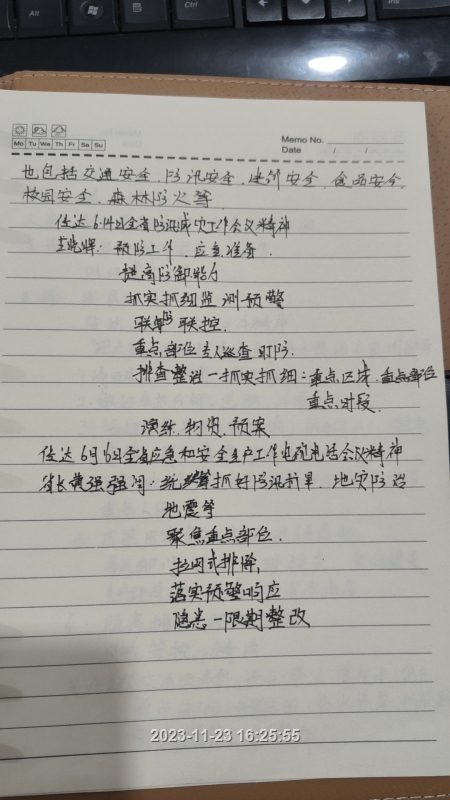 Alt
Ctrl
Ins
Mo Tu We Th Fr Sa Su
Memo No.
Date / /
也包括交通安全、防汛安全、建筑安全、食品安全、
校园安全、森林防火等
传达6.14日全省防汛减灾工作会议精神
预防工作、应急准备.
提高防御能力
抓实抓细监测预警
联防联控.
重点部位专人巡查盯防.
排查整进一抓实抓细:重点区域、重点部位
重点时段.
演练、物资、预案
传达6月6日全省应急和安全生产工作电视电话会议精神
省长黄强强调:统筹抓好防汛抗旱、地灾防治
地震等
聚焦重点部位.
拉网式排除,
落实预警响应
隐患一限期整改
2023-11-23 16:25:55